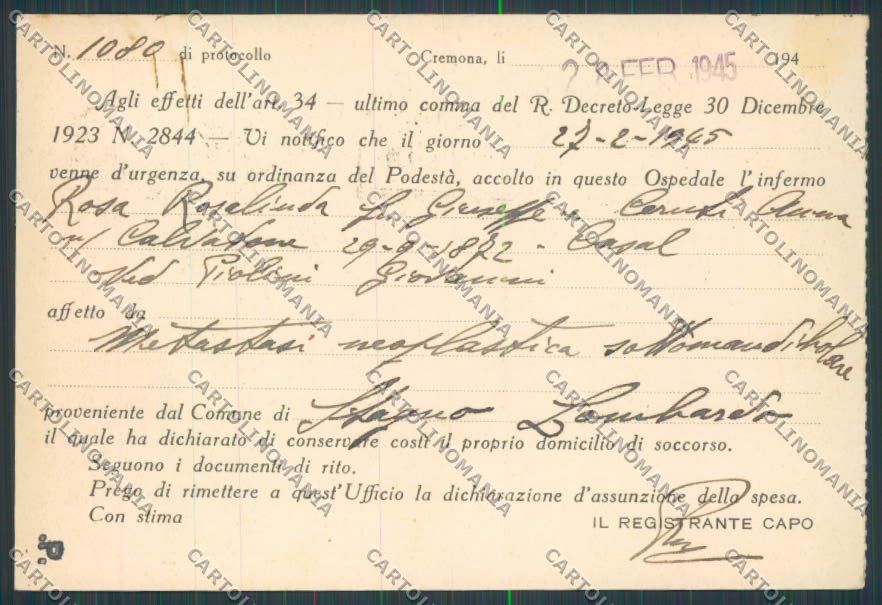 N. 1080 di protocollo Cremona, li 28 FEB 1945 194
Agli effetti dell'art. 34 — ultimo comma del R. Decreto-Legge 30 Dicembre
1923 N. 2844 — Vi notifico che il giorno 27-2-1945
venne d'urgenza, su ordinanza del Podestà, accolto in questo Ospedale l'infermo
Rosa Rosalinda fu Giuseppe e Ceruti Anna
n/ Calvatone 29-9-1872 - Casal
Ved Piolini Giovanni
affetto da
Metastasi neoplastica sottomandibolare
proveniente dal Comune di Stagno Lombardo
il quale ha dichiarato di conservare costì il proprio domicilio di soccorso.
Seguono i documenti di rito.
Prego di rimettere a quest'Ufficio la dichiarazione d'assunzione della spesa.
Con stima
IL REGISTRANTE CAPO
CARTOLINOMANIA